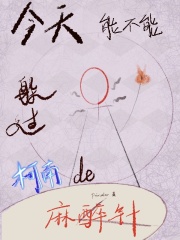 今天能不能
躲过
柯南de
麻醉针